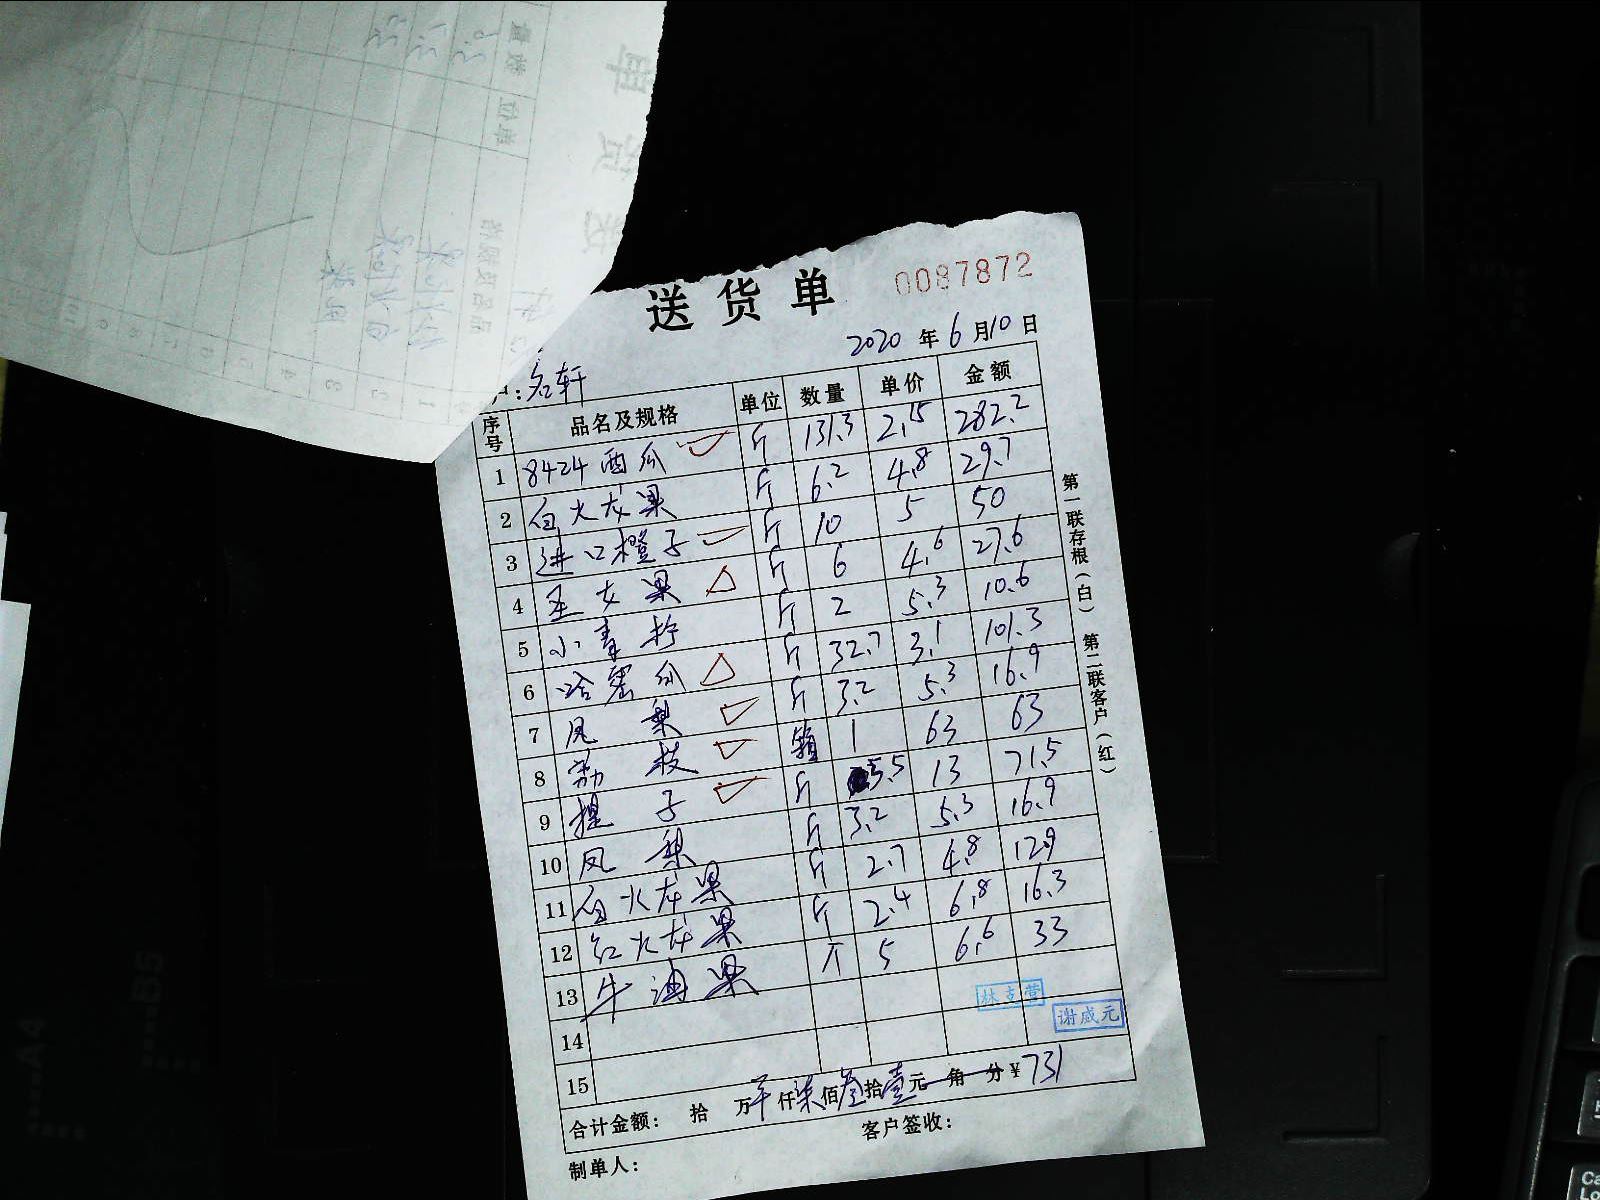 送货单 0087872
2020 年 6 月 10 日
:名轩
序号 品名及规格 单位 数量 单价 金额
1 8424西瓜 斤 131.3 2.15 282.2
2 白火龙果 斤 6.2 4.8 29.7
3 进口橙子 斤 10 5 50
4 圣女果 斤 6 4.6 27.6
5 小青柠 斤 2 5.3 10.6
6 哈密瓜 斤 32.7 3.1 101.3
7 凤梨 斤 3.2 5.3 16.9
8 荔枝 箱 1 63 63
9 提子 斤 5.5 13 71.5
10 凤梨 斤 3.2 5.3 16.9
11 白火龙果 斤 2.7 4.8 12.9
12 红火龙果 斤 2.4 6.8 16.3
13 牛油果 斤 5 6.6 33
14
15
林支营
谢成元
合计金额: 拾 万 仟柒佰叁拾壹元 角 分¥731
制单人: 客户签收:
第一联存根(白) 第二联客户(红)
A4
B5